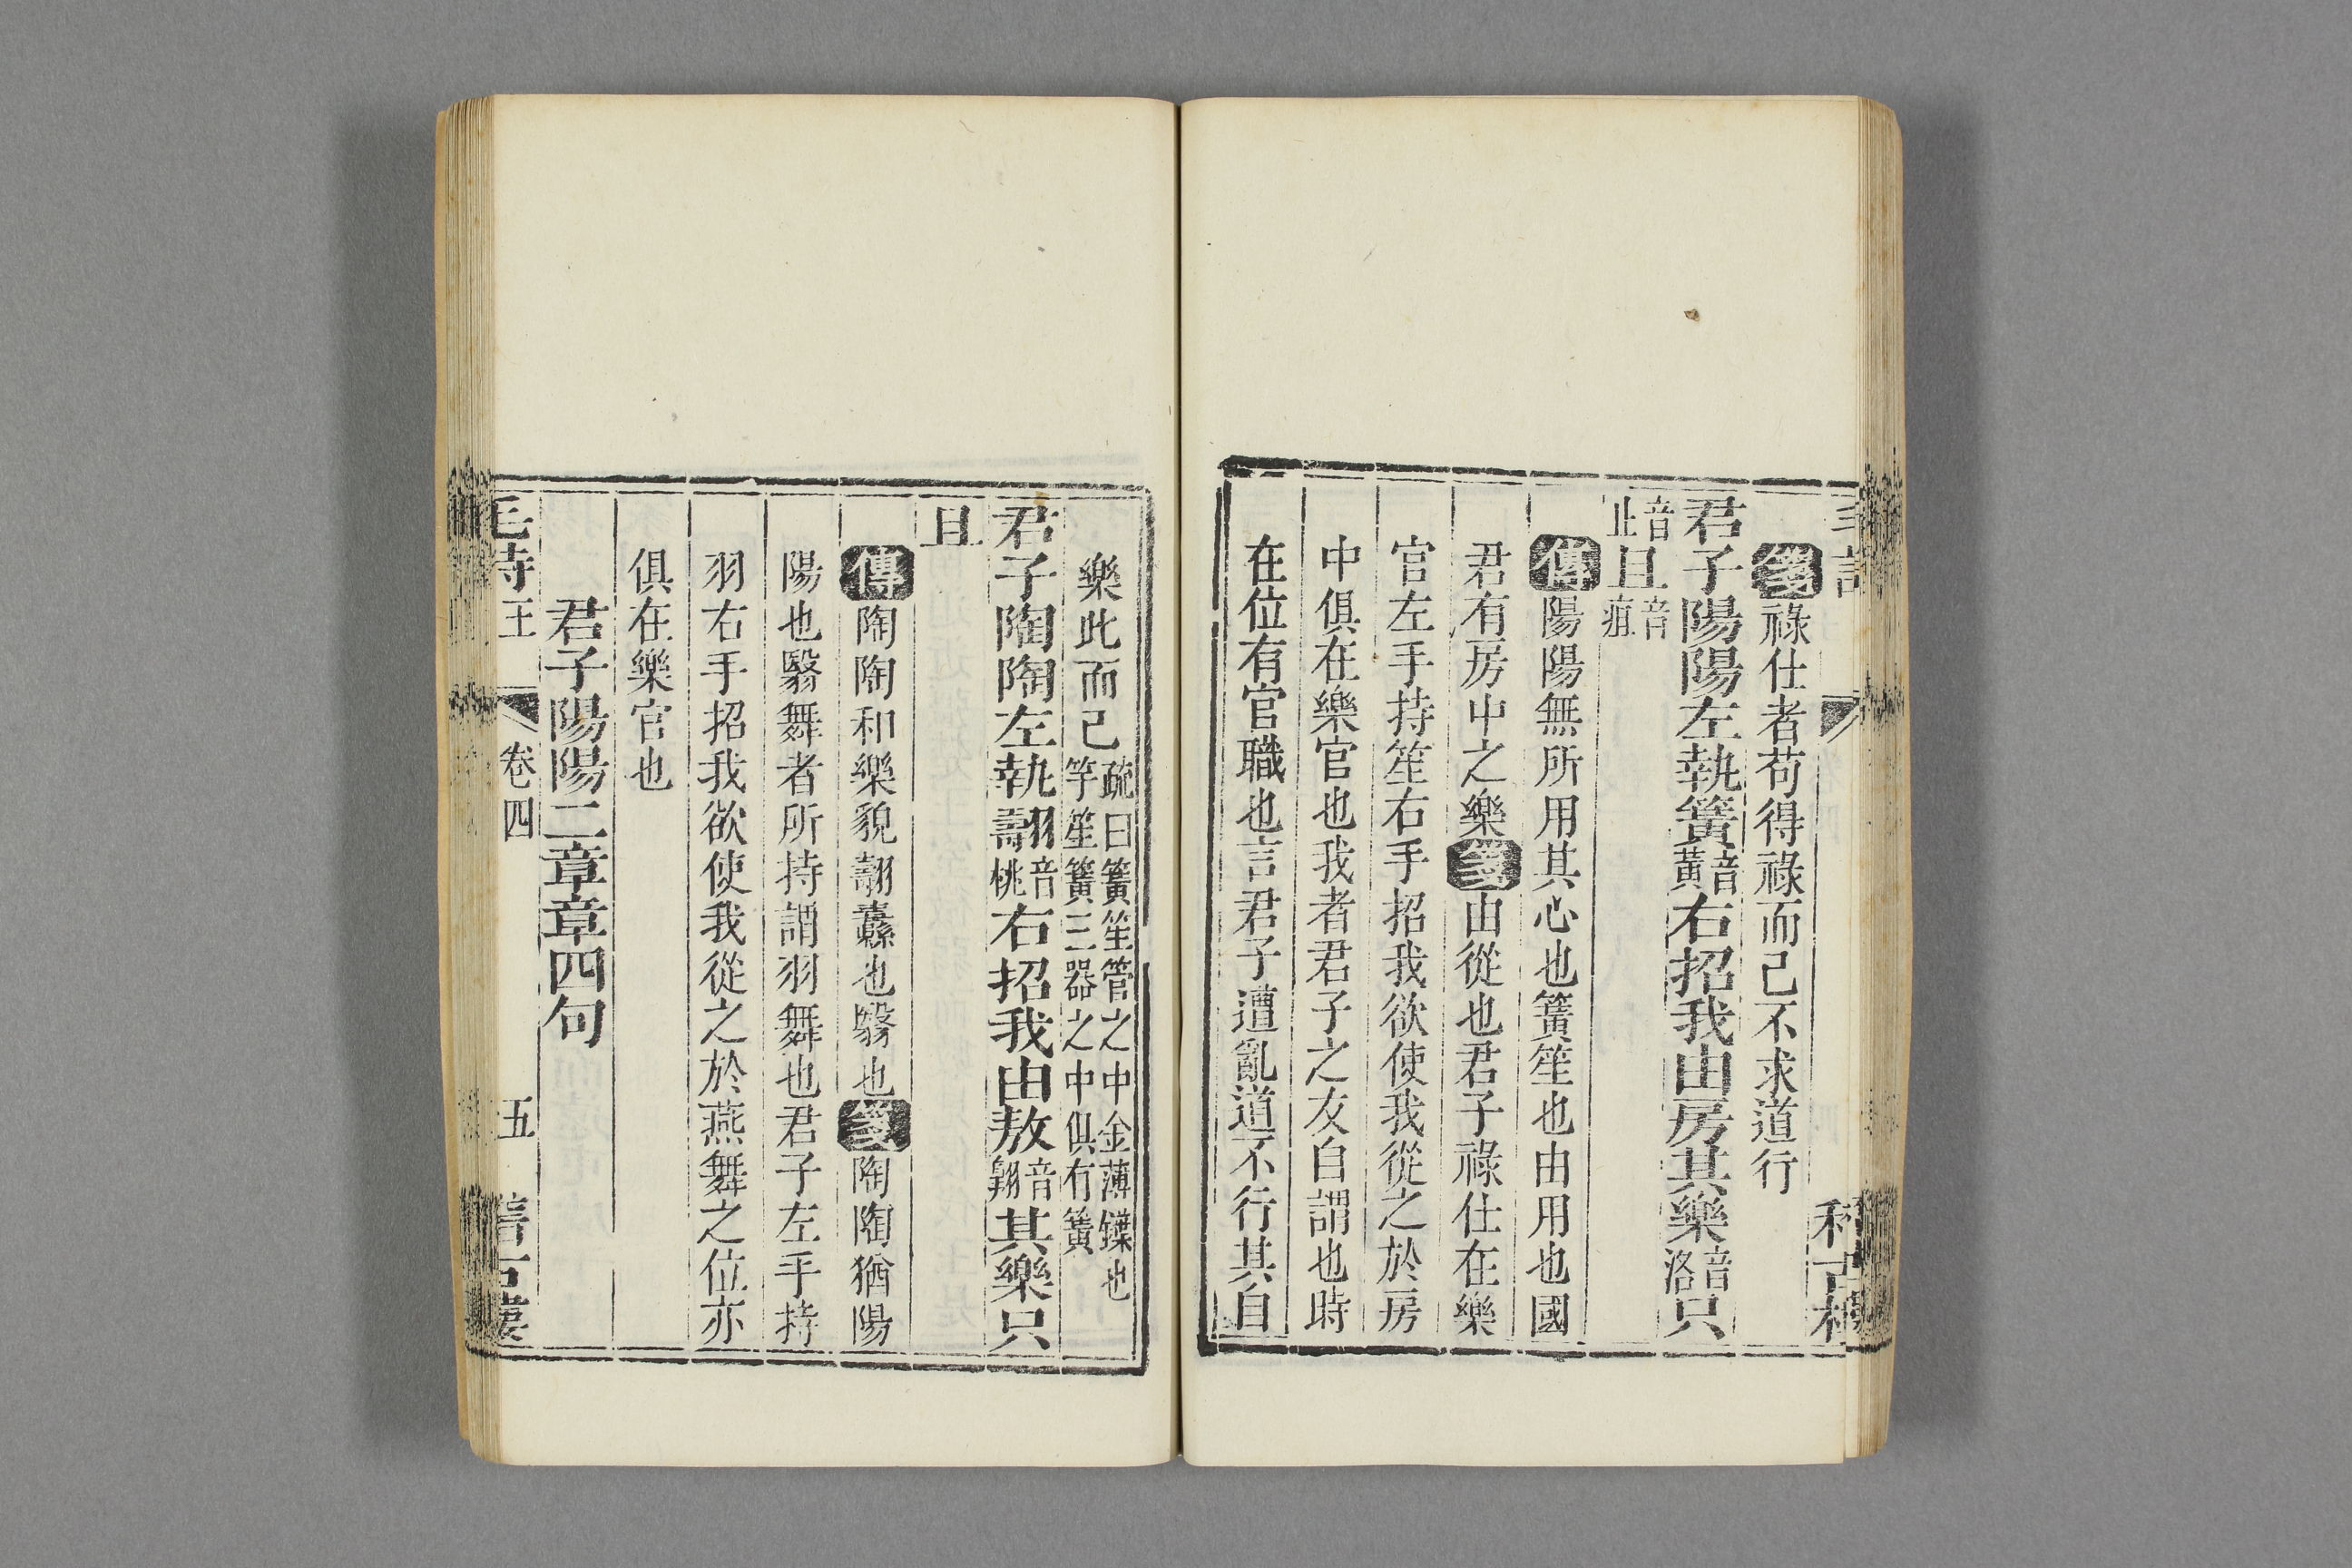 箋祿仕者苟得祿而已不求道行
君子陽陽左執簧音黃右招我由房其樂音洛只
音止且音疽
傳陽陽無所用其心也簧笙也由用也國
君有房中之樂箋由從也君子祿仕在樂
官左手持笙右手招我欲使我從之於房
中俱在樂官也我者君子之友自謂也時
在位有官職也言君子遭亂道不行其自
樂此而已疏曰簧笙管之中金薄鍱也
竽笙簧三器之中俱有簧
君子陶陶左執翿音桃右招我由敖音翱其樂只
且
傳陶陶和樂貌翿纛也翳也箋陶陶猶陽
陽也翳舞者所持謂羽舞也君子左手持
羽右手招我欲使我從之於燕舞之位亦
俱在樂官也
君子陽陽二章章四句
毛詩 王 卷四 五